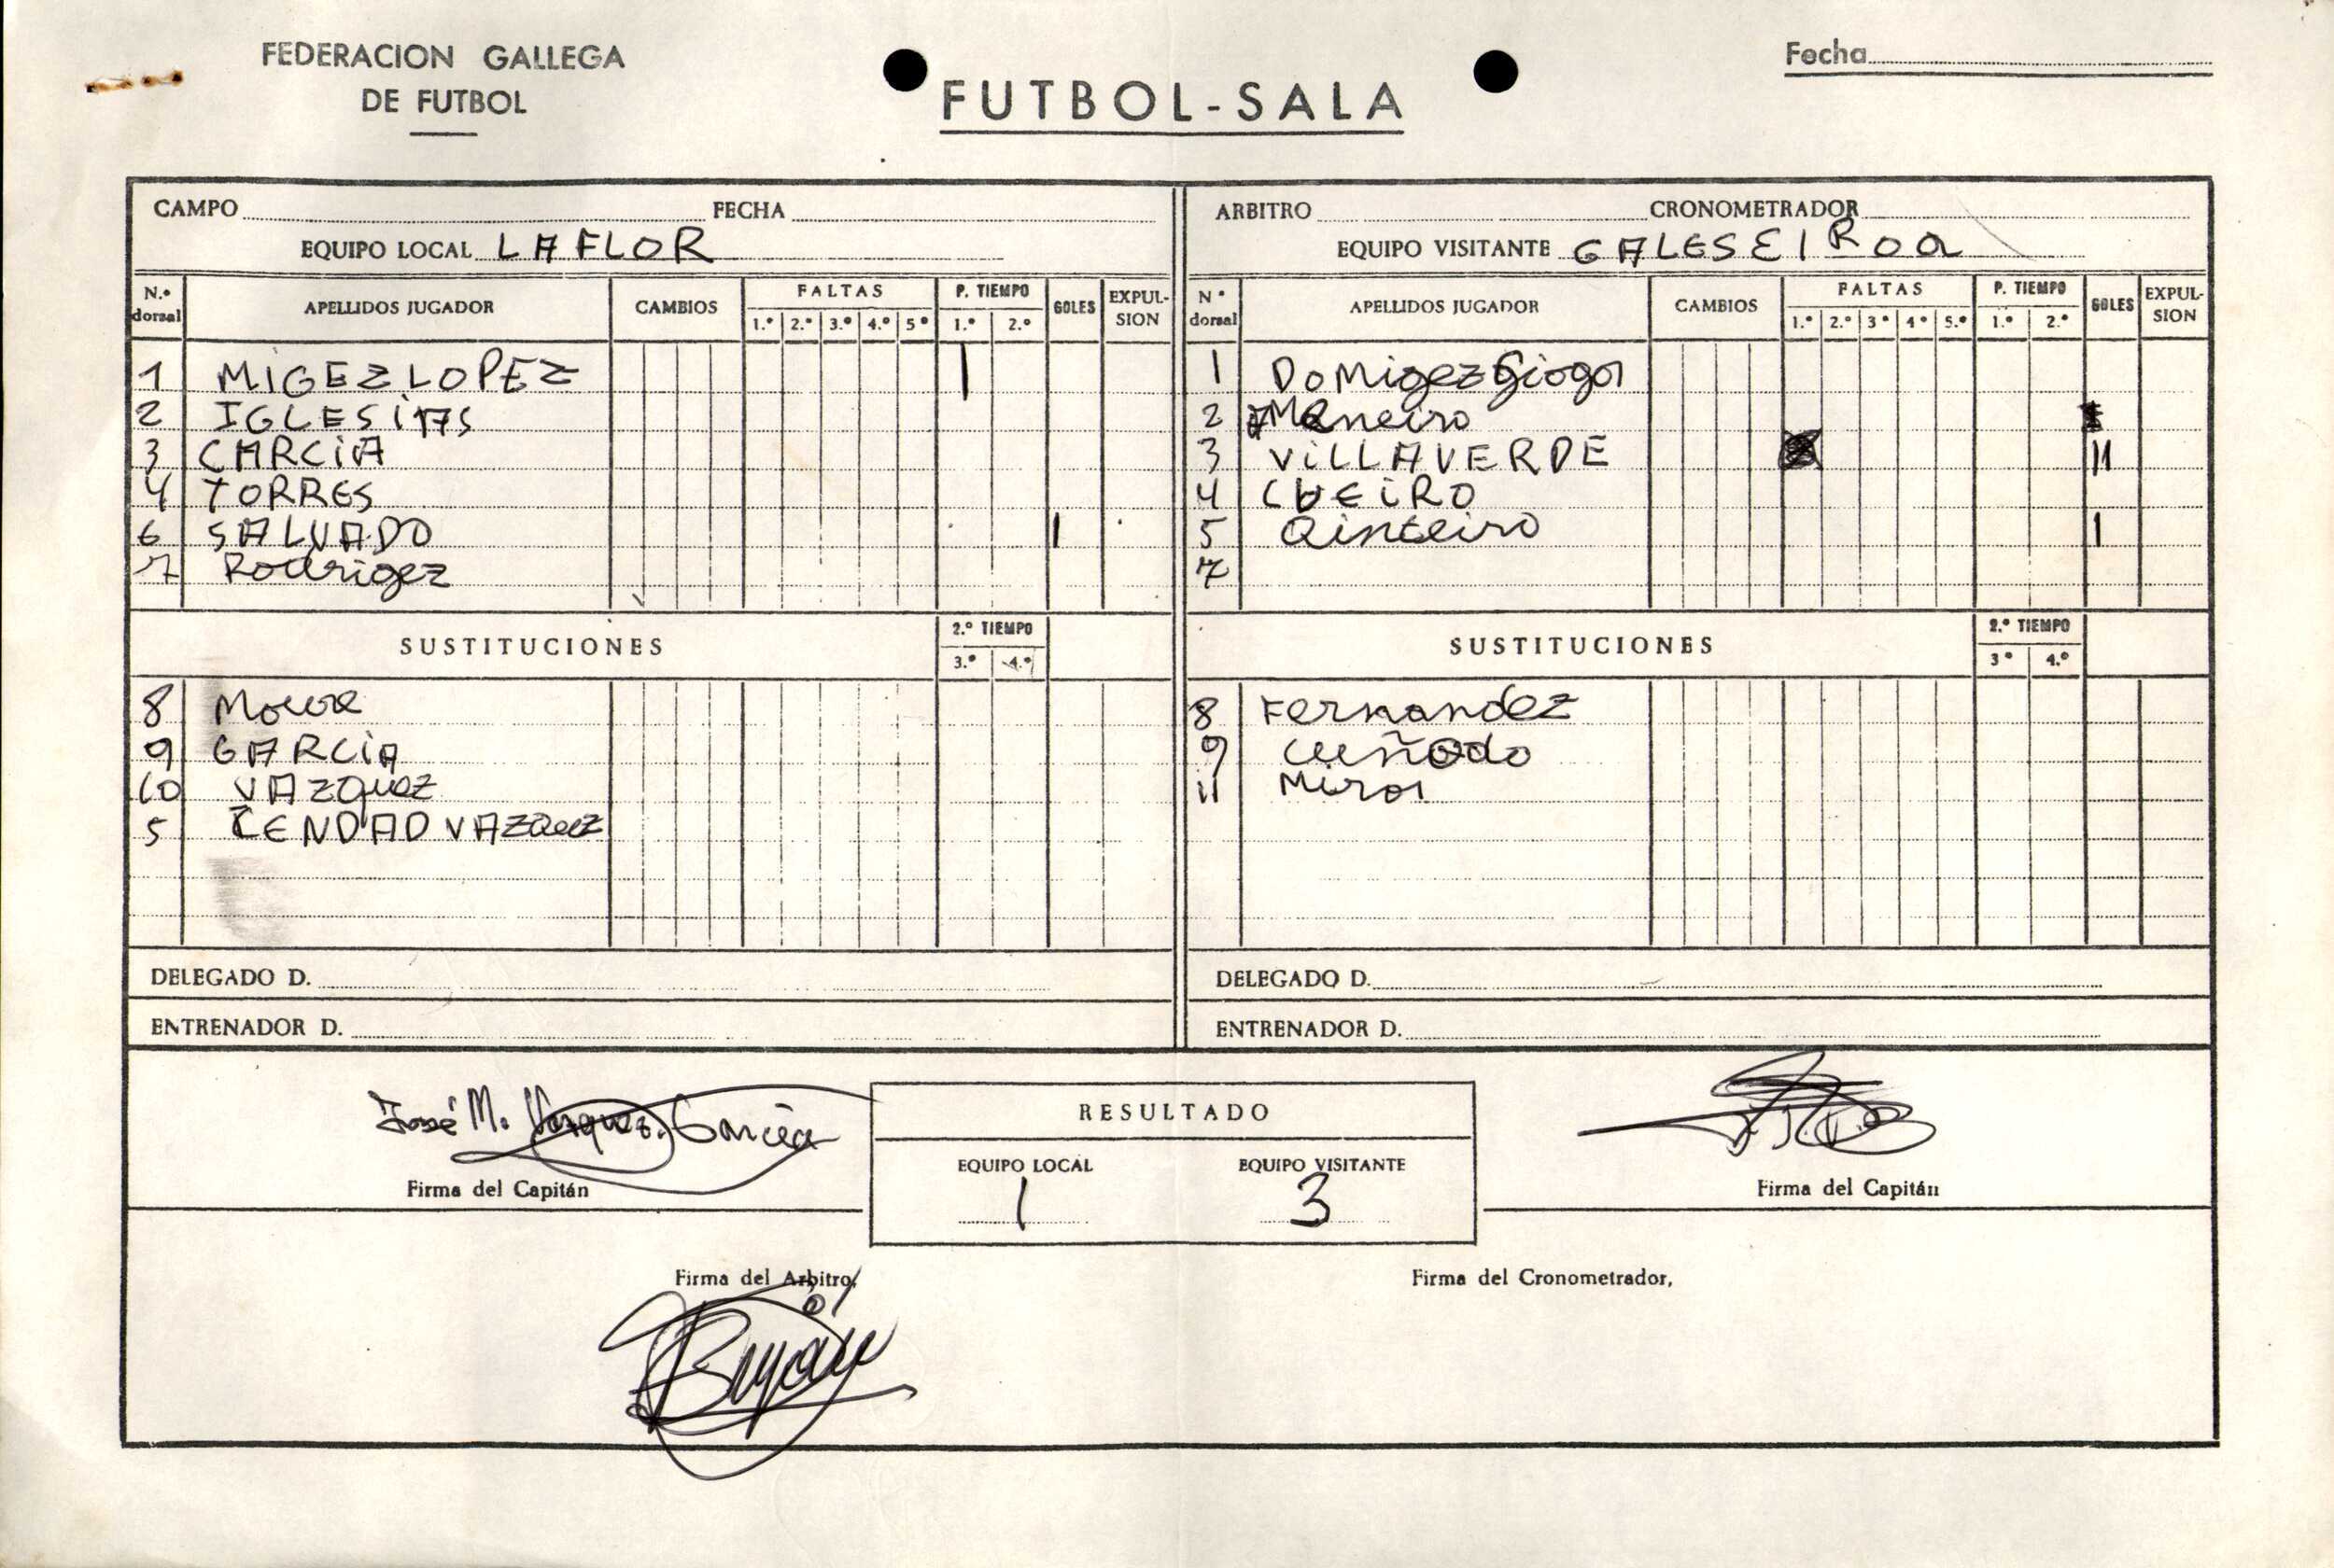 FEDERACION GALLEGA
DE FUTBOL
FUTBOL-SALA
Fecha
CAMPO FECHA
EQUIPO LOCAL LA FLOR
N.º dorsal APELLIDOS JUGADOR CAMBIOS FALTAS 1.º 2.º 3.º 4.º 5º P. TIEMPO 1.º 2.º GOLES EXPUL-SION
1 MIGEZ LOPEZ 1
2 IGLESiAS
3 GARCiA
4 TORRES
6 SALVADO 1
7 Rodrigez
SUSTITUCIONES 2.º TIEMPO 3.º 4.º
8
9 GARCiA
10 VAZquez
5 CENDAD VAZQuez
DELEGADO D.
ENTRENADOR D.
ARBITRO CRONOMETRADOR
EQUIPO VISITANTE GALESEIROA
Nº dorsal APELLIDOS JUGADOR CAMBIOS FALTAS 1.º 2.º 3º 4º 5.º P. TIEMPO 1.º 2.º GOLES EXPUL-SION
1 DoMigez
2 Maneiro
3 ViLLAVERDE 11
4 CUEiRO
5 Qinteiro 1
7
SUSTITUCIONES 2.º TIEMPO 3º 4.º
8 Fernandez
9 cuñado
11
DELEGADO D.
ENTRENADOR D.
José M. Vazquez García
Firma del Capitán
RESULTADO
EQUIPO LOCAL EQUIPO VISITANTE
1 3
Firma del Capitán
Firma del Arbitro,
Firma del Cronometrador,